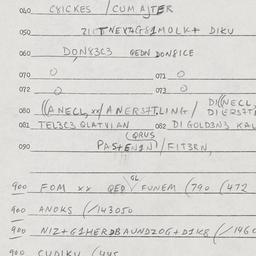 040 C8ICKES / CUM AJTER
050 21CTNEVTG81MOLK+ DIKU
060 DON83C3 QEDN DON8ICE
070 0 071 0
072 0 073 0
080 ((ANECL, xx/ANERS3TLING/ DI((NECL DIERS3T
081 TEL3C3 QLATVIAN 082 DIGOLD3N3 KAL
(QRUS
090 PAS+EN1N)/FIT3RN,
GL
900 FOM xx QED FUNEM (790 (472
900 ANOKS (/143050
900 NIZ+G1HERDBAUNDZOG+D1K8 (/1460
900 CUDIKU (445